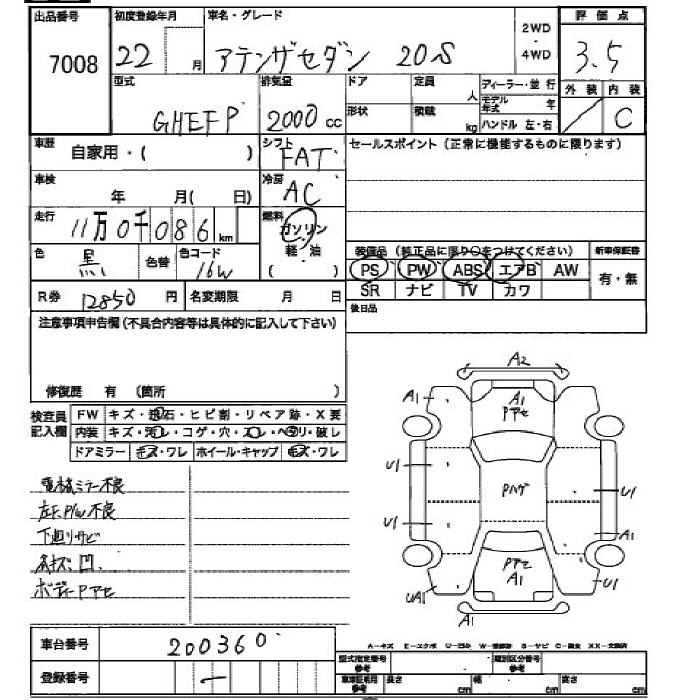 出品番号 初度登録年月 車名・グレード 2WD・4WD 評価点
7008 22 月 アテンザセダン 20S 3.5
型式 排気量 ドア 定員 人 ディーラー・並行 外装 内装
GHEFP 2000 cc 形状 積載 kg モデル年式 年 ハンドル 左・右 C
車歴 自家用・( ) シフト FAT セールスポイント(正常に機能するものに限ります)
車検 年 月( 日) 冷房 AC
走行 11万0千086 km 燃料 ガソリン 軽・油 ( )
色 黒 色替 色コード 16W
装備品(純正品に限り○をつけてください) 新車保証書
PS PW ABS エアB AW 有・無
SR ナビ TV カワ
R券 12850 円 名変期限 月 日 後日品
注意事項申告欄(不具合内容等は具体的に記入して下さい)
修復歴 有 (箇所 )
検査員記入欄 FW キズ・飛石・ヒビ割・リペア跡・X要
内装 キズ・汚レ・コゲ・穴・スレ・ヘタリ・破レ
ドアミラー キズ・ワレ ホイール・キャップ キズ・ワレ
電格ミラー不良
左F.P/W不良
下廻リサビ
キズ.凹.
ボディーPアセ
A2
A1 A1
Pアセ
U1
Pハゲ
U1
U1
A1
Pアセ
A1
U1
UA1
A1
車台番号 200360
登録番号 ー
A-キズ E-エクボ U-凹み W-補修跡 S-サビ C-腐食 XX-交換済
型式指定番号 参考 類別区分番号 参考
車庫証明用 参考 長さ cm 幅 cm 高さ cm